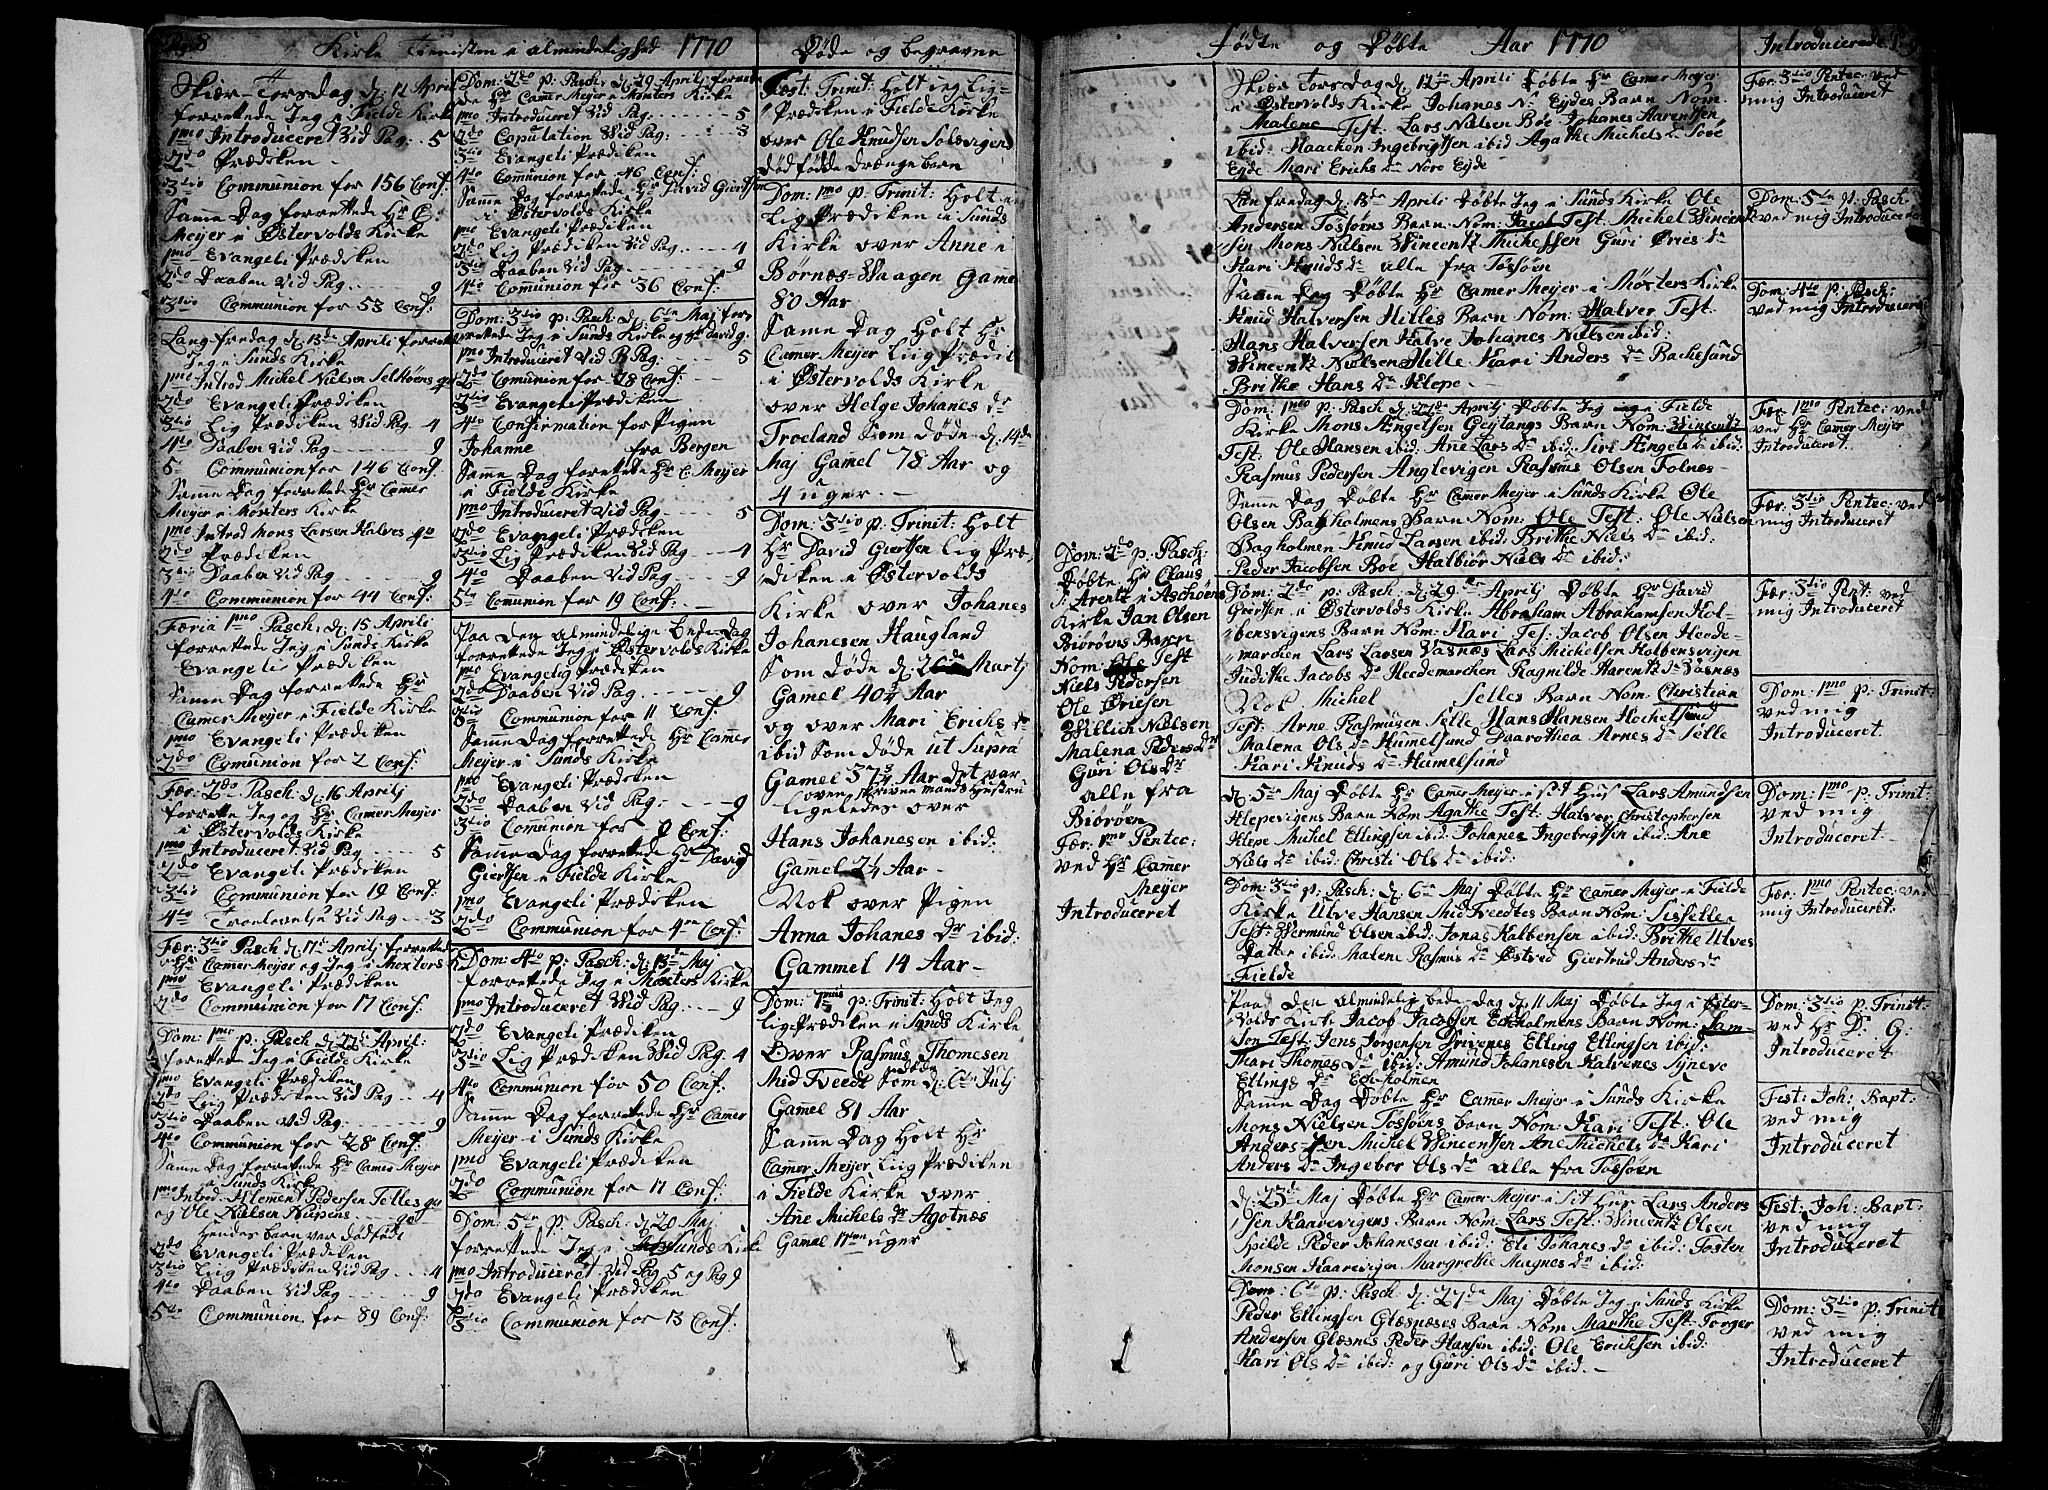 Pag: 8
Kirke Tienisten i almindelighed 1770
Døde og begravne
Skiær-Torsdag d: 12 April
forrettede Jeg i Fielde Kirke
1mo Introduceret Vid Pag: 5
2do Prædiken
3tio Communion for 156 Conf:
Samme Dag forrettede Hr C:
Meijer i Østervolds Kirke
1mo Evangeli Prædiken
2do Daaben Vid Pag. 9
3tio Communion for 53 Conf:
Lang fredag d: 13de Aprili forrettede
Jeg i Sunds Kirke
1mo Introd Mickel Nielsen Seltøens
2do Evangeli Prædiken
3tio Lig Prædiken Vid Pag. 4
4to Daaben Vid Pag. 9
5 Communion for 146 Conf:
Samme Dag forrettede Hr Camer
Meijer i Møxters Kirke
1mo Introd Mons Larsen Kalves
2do Prædiken
3tio Daaben Vid Pag. 9
4to Communion for 44 Conf:
Færia 1mo Pasch: d: 15 Aprili
forrettede Jeg i Sunds Kirke
Evangelis Prædiken
Samme Dag forrettede Hr
Camer Meijer i Fielde Kirke
1mo Evangeli Prædiken
2do Communion for 2 Conf:
Fær: 2do Pasch: d: 16 Aprilj
forrettede Jeg og Hr Camer Meijer
i Østervolds Kirke
1mo Introduceret Vid Pag. 5
2do Evangeli Prædiken
3tio Communion for 19 Conf:
4to Troelovelse Vid Pag. 3
Fær: 3tio Pasch d: 17 Aprilj forrettede
Hr Camer Meijer og Jeg i Moxters
1mo Evangeli Prædiken
2do Communion for 17 Conf:
Dom: 1mo p: Pasch d: 22de April:
forrettede Jeg i Fielde Kirke
1mo Evangeli Prædiken
2do Liig Prædiken Vid Pag. 4
3tio Daaben Vid Pag. 9
4to Communion for 28 Conf:
Samme Dag forrettede Hr Camer Meijer
i Sunds Kirke
1mo Introd: Klement Pedersen Telles
og Ole Nielsen
Hendes barn var dødfødt
2do Evangeli Prædiken
3tio Liig Prædiken Vid Pag. 4
4to Daaben Vid Pag. 9
5to Communion for 89 Conf:
Dom: 2do p: Pasch: d: 29 Aprilj forrette
de Hr Camer Meijer i Moxters Kirke
1mo Introduceret Vid Pag. 5
2do Copulation Vid Pag: 3
3tio Evangeli Prædiken
4to Comunion for 46 Conf:
Samme Dag forrettede Hr David Giertsen
i Østervolds Kirke
1mo Evangeli Prædiken
2do Lig Prædiken Vid Pag. 4
3tio Daaben Vid Pag. 9
4to Comunion for 36 Conf:
Dom: 3tio p: Pasch d: 6te Maj for-
rettede Jeg i Sunds Kirke og Hr David G.
1mo Introduceret Vid Pag: 5
2do Comunion for 78 Conf:
3tio Evangeli Prædiken
4to Confirmation for Pigen
Johanne fra Bergen
Samme Dag forrettede Hr C: Meijer
i Fielde Kirke
1mo Introduceret Vid Pag. 5
2do Evangeli Prædiken
3tio Lig Prædiken Vid Pag. 4
4to Daaben Vid Pag. 9
5to Comunion for 19 Conf:
Paa den almindelige bede-Dag
forrettede Jeg i Østervolds Kirke
1mo Evangeli Prædiken
2do Daaben Vid Pag. 9
3tio Communion for 11 Conf:
Samme Dag forrettede Hr Camer
Meijer i Sunds Kirke
1mo Evangeli Prædiken
2do Daaben Vid Pag: 9
3tio Communion for 9 Conf:
Samme Dag forrettede Hr David
Giertsen i Fielde Kirke
1mo Evangeli Prædiken
2do Communion for 4re Conf:
Dom: 4to p: Pasch: d: 13de Maj
forrettede Jeg i Moxters Kirke
1mo Introduceret Vid Pag. 9
2do Evangeli Prædiken
3tio Lig Prædiken Vid Pag: 4
4to Communion for 50 Conf:
Samme Dag forrettede Hr Camer
Meijer i Sunds Kirke
1mo Evangeli Prædiken
2do Communion for 17 Conf:
Dom: 5te p: Pasch: d: 20 Maj
forrettede Jeg i Sunds Kirke
1mo Introduceret Vid Pag 5 og Pag 9
2do Evangeli Prædiken
3tio Communion for 13 Conf:
Fæst: Trinit: Holt jeg Lig=
Prædiken i Fielde Kirke
over Ole Knudsen Solsvigens
dødfødde drænge barn
Dom: 1mo p: Trinit: Holt
Lig Prædiken i Sunds
Kirke over Anne i
Børnæs-Waagen Gamel
80 Aar
Samme Dag Holt Hr
Camer Meijer Liig Prædik
i Østervolds Kirke
over Helge Johanes dr
Troeland Som døde d: 14de
Maj Gamel 78 Aar og
4 uger.
Dom: 3tio p: Trinit: Holt
Hr David Giertsen Lig Præ-
diken i Østervolds
Kirke over Johanes
Johanesen Haugland
Som døde d: Martj
Gamel 40¾ Aar
og over Mari Erichs dr
ibid Som døde ut Supra
Gamel 37¾ Aar det var
oven Skrivne mands Hustru
ligeledes over
Hans Johanesen ibid:
Gammel 2¼ Aar
Nok over Pigen
Anna Johanes dr ibid:
Gammel 14 Aar
Dom: 7mo p: Trinit: Holt Jeg
Lig Prædiken i Sunds Kirke
Over Rasmus Thomesen
Mid Tveedt Som døde d: 6te Julj
Gammel 81 Aar
Samme Dag Holt Hr
Camer Meijer Liig Prædiken
i Fielde Kirke over
Ane Michels dr Agotnæs
Gamel 17ten uger
Fødte og Døbte Aar 1770
Introducerede Pag 9
Dom: 2do p: Pasch:
Døbte Hr Claus
Arentz i Aschøens
Kirke Jan Olsen
Biørøens Barn
Nom: Ole Test
Niels Pedersen
Ole Øriesen
Willich Nielsen
Malena Peders dr
Guri Ols dr
alle fra
Biørøen
Fær: 1mo Pentec:
ved Hr Camer
Meijer
Introduceret
Skiær Torsdag d: 12te Aprili Døbte Hr Camer Meijer
i Østervolds Kirke Johanes N: Eydes Barn Nom:
Malene Test: Lars Nielsen Boe Johanes Harentsen
ibid: Haachen Ingebrigtsen ibid Agathe Michels dr Boe
Eyde Mari Erichs dr Nore Eyde
Lan fredag d: 13de Aprili Døbte Jeg i Sunds Kirke Ole
Andersen Tøssøens Barn Nom: Jacob Test Michel Wincent
sen Mons Nielsen Wincentz Michelsen Guri Ories dr
Kari Knuds dr alle fra Tøssøen
Samme Dag Døbte Hr Camer Meijer i Møxters Kirke
Knud Halversen Hilles Barn Nom: Halver Test:
Hans Halversen Kalve Johanes Nielsen ibid:
Wincentz Nielsen Hille Kari Anders dr Bachesund
Brithe Hans dr Klepe
Dom: 1mo p: Pasch d: 22de Aprilj Døbte Jeg i Fielde
Kirke Mons Ængelsen Geitangs Barn Nom: Wincentz
Test: Ole Hansen ibid: Ane Lars dr ibid: Siri Ængels dr ibid:
Rasmus Pedersen Anglevigen Rasmus Olsen Folnæs
Samme Dag Døbte Hr Camer Meijer i Sunds Kirke Ole
Olsen Bagholmens Barn Nom: Ole Test: Ole Nielsen
Bagholmen Knud Larsen ibid: Brithe Niels dr ibid:
Peder Jacobsen Boe Halbiør Niels dr ibid:
Dom: 2do p: Pasch: d: 29de Aprilj Døbte Hr David
Giertsen i Østervolds Kirke Abraham Abrahamsen Kol-
bensvigens Barn Nom: Kari Test: Jacob Olsen Heede-
marchen Lars Larsen Vasnæs Lars Michelsen Kolbensvigen
Judithe Jacobs dr Heedemarchen Ragnilde Harentz dr Vasnæs
Nok Michel Selles Barn Nom: Christian
Test: Arne Rasmusen Selle Hans Hansen Hochelsund
Malena Ols dr Hummelsund Daarothea Arnes dr Selle
Kari Knuds dr Humelsund
d: 5te Maj Døbte Hr Camer Meijer i sit Huus Lars Amundsen
Klepevigens Barn Nom Agathe Test: Halver Christophersen
Klepe Michel Ellingsen ibid: Johanes Ingebrigtsen ibid: Ane
Niels dr ibid: Christi Ols dr ibid:
Dom: 3tio p: Pasch: d: 6te Maj Døbte Hr Camer Meijer i Fielde
Kirke Utve Hansen Mid Tveedtes Barn Nom: Sisselle
Test: Wermund Olsen ibid: Jonas Kalbensen ibid: Brithe Utves
Datter ibid: Malen Rasmus dr Østved Giertrud Anders dr
Fielde
Paa den almindelig bede-dag d: 11 Maj Døbte Jeg i Øster-
volds Kirke Jacob Jacobsen Echholmens Barn Nom: Sam
son Test: Jens Jorgensen Drivenes Elling Ellingsen ibid:
Kari Thomes dr ibid: Amund Johanesen Kalvenes Syneve
Ellings dr Echholmen
Samme Dag Døbte Hr Camer Meijer i Sunds Kirke
Mons Nielsen Tøssøens barn Nom: Kari Test: Ole
Andersen Michel Wincentsen Ane Michels dr Kari
Anders dr Ingebor Ols dr alle fra Tøssøen
d: 23de Maj Døbte Hr Camer Meijer i Sit Huus Lars Anders
sen Kaarevigens Barn Nom: Lars Test: Wincentz Olsen
Spilde Peder Johanesen ibid: Eli Johanes dr ibid: Tosten
Monsen Kaarevigen Margrethe Magnes dr ibid:
Dom: 6te p: Pasch d: 27de Maj Døbte Jeg i Sunds Kirke
Peder Ellingsen Glæsneses Barn Nom Marthe Test: Torger
Andersen Glæsnes Peder Hansen ibid: Ole Erichsen ibid:
Kari Ols dr ibid: og Guri Ols dr ibid.
Fær: 3tio Pentec: ved
mig Introduceret
Dom: 5te p: Pasch:
ved mig Introduceret
Dom: 4to p: Pasch:
ved mig Introduceret
Fær: 1mo Pentec: ved
ved Hr Camer Meijer
Introduceret
Fær: 3tio Pentec: ved
mig Introduceret
Fær: 3tio Pent: ved
mig Introduceret
Dom: 1mo p: Trinit:
ved mig
Introduceret.
Dom: 1mo p: Trinit:
ved mig
Introduceret
Fær: 1mo Pentec: ved
mig Introduceret:
Dom: 3tio p: Trinit:
ved Hr D: G:
Introduceret
Fest: Joh: Bapt:
ved mig
Introduceret
Fest: Joh: Bapt:
ved mig
Introduceret
Dom: 3tio p: Trinit
ved mig
Introduceret